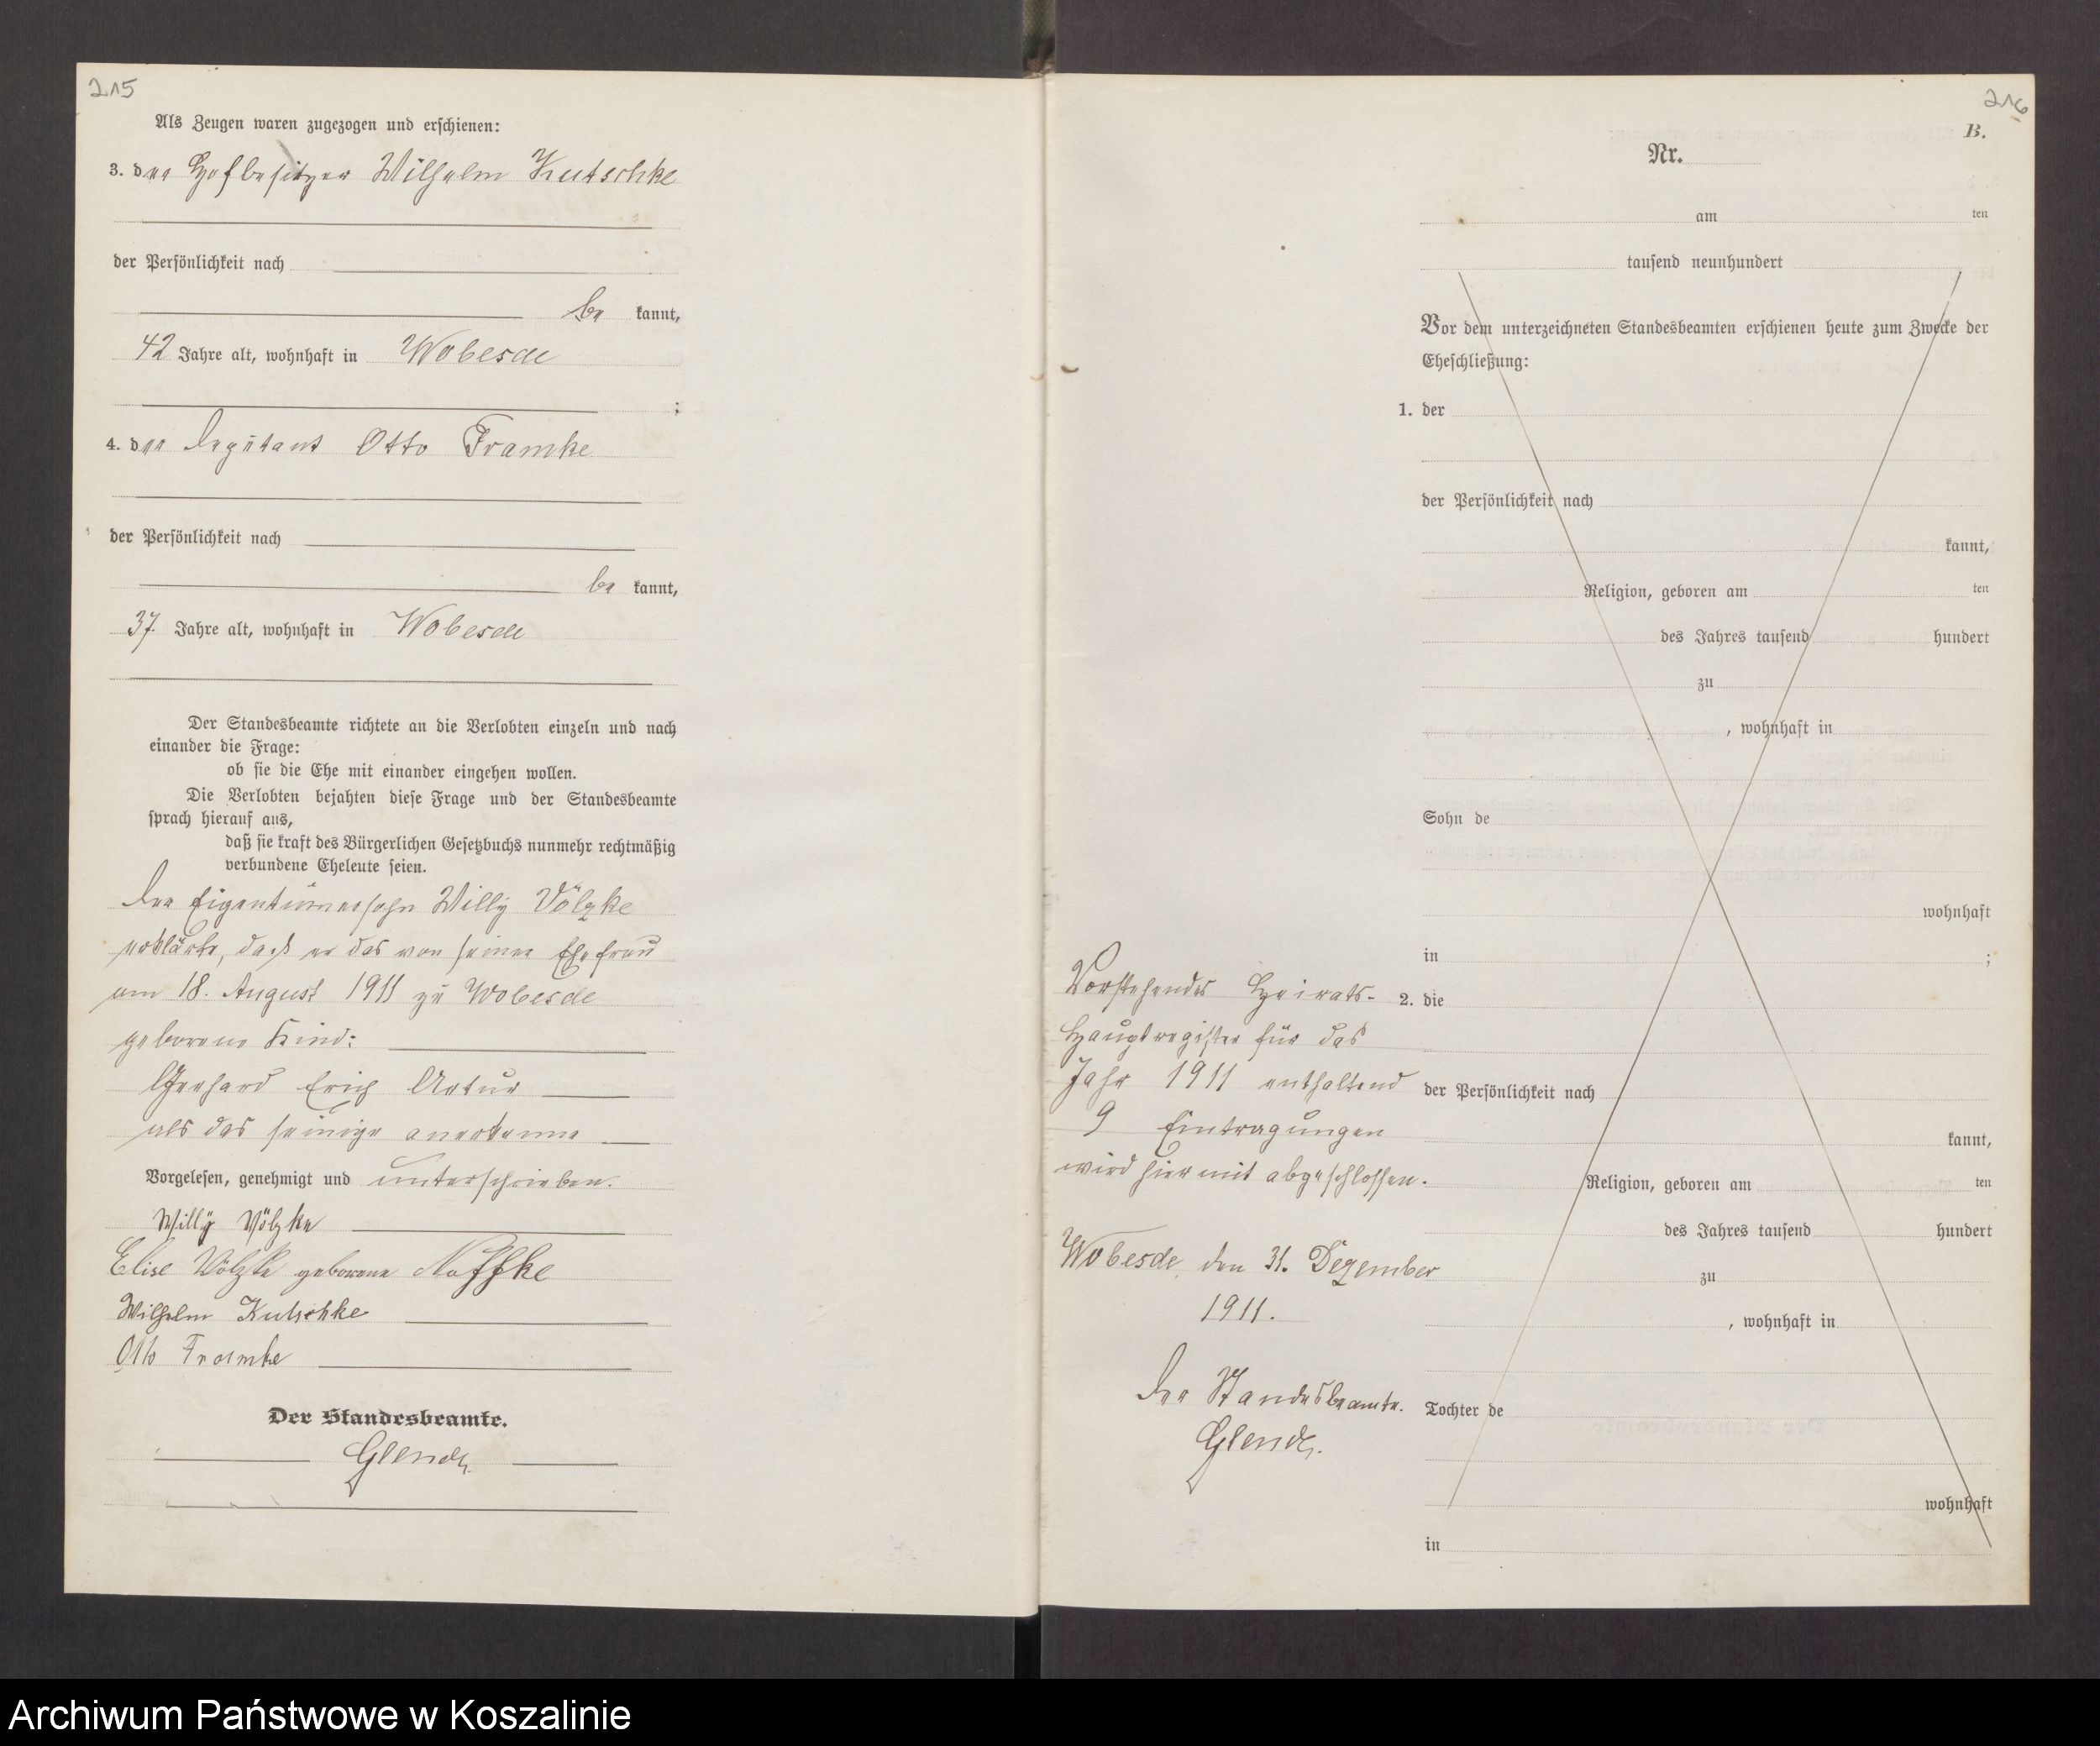 215
Als Zeugen waren zugezogen und erschienen:
3. der Hofbesitzer Wilhelm Kutschke
der Persönlichkeit nach
be kannt,
42 Jahre alt, wohnhaft in Wobesde
;
4. der Deputant Otto Framke
der Persönlichkeit nach
be kannt,
37 Jahre alt, wohnhaft in Wobesde
Der Standesbeamte richtete an die Verlobten einzeln und nach
einander die Frage:
ob sie die Ehe mit einander eingehen wollen.
Die Verlobten bejahten diese Frage und der Standesbeamte
sprach hierauf aus,
daß sie kraft des Bürgerlichen Gesetzbuchs nunmehr rechtmäßig
verbundene Eheleute seien.
Der Eigentümersohn Willy Völzke
erklärte, daß er das von seiner Ehefrau
am 18. August 1911 zu Wobesde
geborene Kind:
Gerhard Erich Artur
als das seinige anerkenne
Vorgelesen, genehmigt und unterschrieben.
Willy Völzke
Elise Völzke geborene Noffke
Wilhelm Kutschke
Otto Framke
Der Standesbeamte.
Glende
216
B.
Nr.
am ten
tausend neunhundert
Vor dem unterzeichneten Standesbeamten erschienen heute zum Zwecke der
Eheschließung:
1. der
der Persönlichkeit nach
kannt,
Religion, geboren am ten
des Jahres tausend hundert
zu
, wohnhaft in
Sohn de
wohnhaft
in ;
2. die
der Persönlichkeit nach
kannt,
Religion, geboren am ten
des Jahres tausend hundert
zu
, wohnhaft in
Tochter de
wohnhaft
in
Vorstehendes Heirats-
Hauptregister für das
Jahr 1911 enthaltend
9 Eintragungen
wird hiermit abgeschlossen.
Wobesde, den 31. Dezember
1911.
Der Standesbeamte.
Glende.
Archiwum Państwowe w Koszalinie